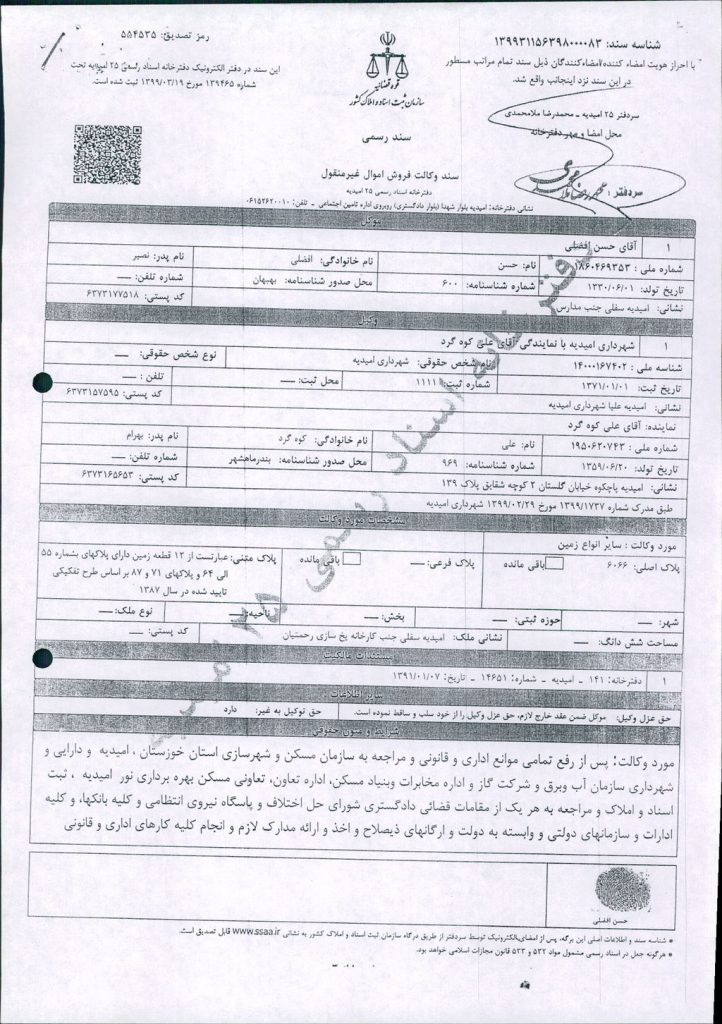 شناسه سند: ۱۳۹۹۳۱۱۵۶۳۹۸۰۰۰۰۸۳
با احراز هویت امضاء کننده/امضاءکنندگان ذیل سند تمام مراتب مسطور
در این سند نزد اینجانب واقع شد.
سردفتر ۲۵ امیدیه - محمدرضا ملامحمدی
محل امضا و مهر دفترخانه
سردفتر :
قوه قضائیه
سازمان ثبت اسناد و املاک کشور
سند رسمی
سند وکالت فروش اموال غیرمنقول
دفترخانه اسناد رسمی ۲۵ امیدیه
رمز تصدیق: ۵۵۴۵۳۵
این سند در دفتر الکترونیک دفترخانه اسناد رسمی ۲۵ امیدیه تحت
شماره ۱۳۹۴۶۵ مورخ ۱۳۹۹/۰۳/۱۹ ثبت شده است.
نشانی دفترخانه: امیدیه بلوار شهدا (بلوار دادگستری) روبروی اداره تامین اجتماعی - تلفن: ۰۶۱۵۲۶۲۰۰۱۰
موکل
۱ آقای حسن افضلی
شماره ملی : ۱۸۶۰۴۶۹۳۵۳ نام: حسن نام خانوادگی: افضلی نام پدر: نصیر
تاریخ تولد: ۱۳۳۰/۰۶/۰۱ شماره شناسنامه: ۶۰۰ محل صدور شناسنامه: بهبهان شماره تلفن: —
نشانی: امیدیه سفلی جنب مدارس کد پستی: ۶۳۷۳۱۷۷۵۱۸
وکیل
۱ شهرداری امیدیه با نمایندگی آقای علی کوه گرد
شناسه ملی : ۱۴۰۰۰۱۶۷۴۰۲ نام شخص حقوقی: شهرداری امیدیه نوع شخص حقوقی: —
تاریخ ثبت: ۱۳۷۱/۰۱/۰۱ شماره ثبت: ۱۱۱۱ محل ثبت: — تلفن : —
نشانی: امیدیه علیا شهرداری امیدیه کد پستی: ۶۳۷۳۱۵۷۵۹۵
نماینده: آقای علی کوه گرد
شماره ملی : ۱۹۵۰۶۳۰۷۴۳ نام: علی نام خانوادگی: کوه گرد نام پدر: بهرام
تاریخ تولد: ۱۳۵۹/۰۶/۲۰ شماره شناسنامه: ۹۶۹ محل صدور شناسنامه: بندرماهشهر شماره تلفن: —
نشانی: امیدیه پاچکوه خیابان گلستان ۲ کوچه شقایق پلاک ۱۳۹ کد پستی: ۶۳۷۳۱۶۵۶۵۳
طبق مدرک شماره ۱۳۹۹/۱۷۳۷ مورخ ۱۳۹۹/۰۲/۲۹ شهرداری امیدیه
مشخصات مورد وکالت
مورد وکالت : سایر انواع زمین
پلاک اصلی: ۶۰۶۶ باقی مانده پلاک فرعی: — باقی مانده پلاک متنی: عبارتست از ۱۲ قطعه زمین دارای پلاکهای بشماره ۵۵
الی ۶۴ و پلاکهای ۷۱ و ۸۷ بر اساس طرح تفکیکی
تایید شده در سال ۱۳۸۷
شهر: — حوزه ثبتی: — بخش: — ناحیه: — نوع ملک: —
مساحت شش دانگ: — نشانی ملک: امیدیه سفلی جنب کارخانه یخ سازی رحمنیان کد پستی: —
مستندات مالکیت
۱ دفترخانه: ۱۴۱ - امیدیه - شماره: ۱۴۶۵۱ - تاریخ: ۱۳۹۱/۰۱/۰۷
سایر اطلاعات
حق عزل وکیل: موکل ضمن عقد خارج لازم، حق عزل وکیل را از خود سلب و ساقط نموده است. حق توکیل به غیر: دارد
شرایط و متون حقوقی
مورد وکالت؛ پس از رفع تمامی موانع اداری و قانونی و مراجعه به سازمان مسکن و شهرسازی استان خوزستان ، امیدیه و دارایی و
شهرداری سازمان آب وبرق و شرکت گاز و اداره مخابرات وبنیاد مسکن، اداره تعاون، تعاونی مسکن بهره برداری نور امیدیه ، ثبت
اسناد و املاک و مراجعه به هر یک از مقامات قضائی دادگستری شورای حل اختلاف و پاسگاه نیروی انتظامی و کلیه بانکها، و کلیه
ادارات و سازمانهای دولتی و وابسته به دولت و ارگانهای ذیصلاح و اخذ و ارائه مدارک لازم و انجام کلیه کارهای اداری و قانونی
حسن افضلی
* شناسه سند و اطلاعات اصلی این برگه، پس از امضای الکترونیک توسط سردفتر از طریق درگاه سازمان ثبت اسناد و املاک کشور به نشانی www.ssaa.ir قابل تصدیق است.
* هرگونه جعل در اسناد رسمی مشمول مواد ۵۳۲ و ۵۳۳ قانون مجازات اسلامی خواهد بود.